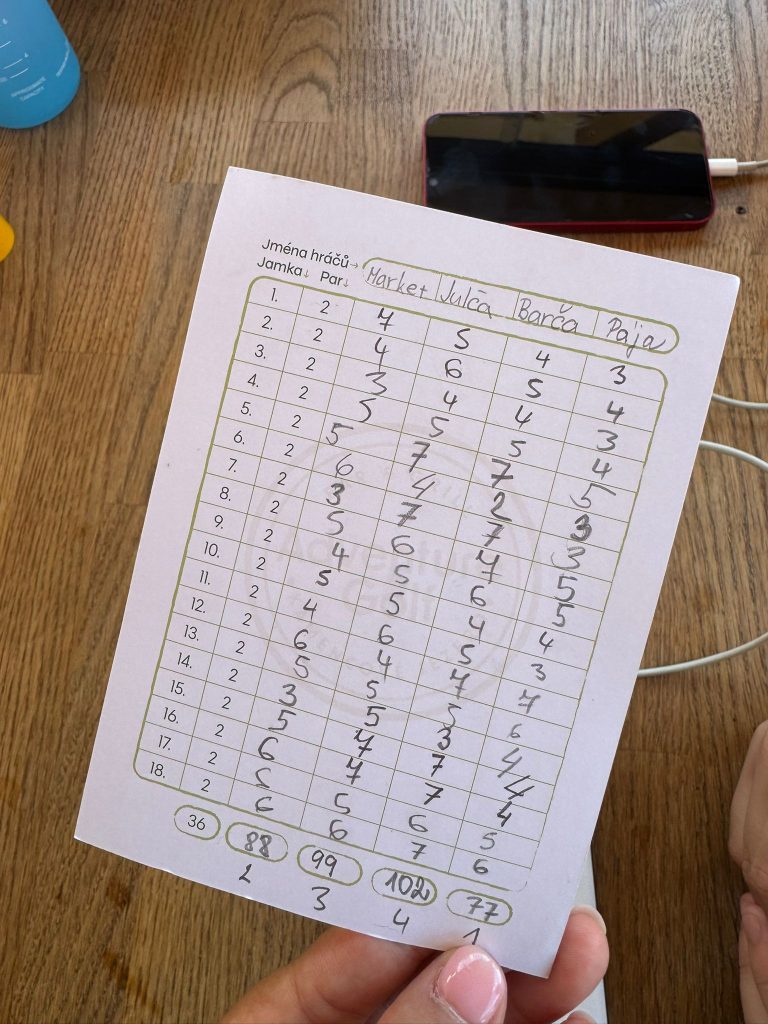 Jména hráčů→ Market Julča Barča Paja
Jamka↓ Par↓
1. 2 7 5 4 3
2. 2 4 6 5 4
3. 2 3 4 4 3
4. 2 5 5 5 4
5. 2 5 7 7 5
6. 2 6 4 2 3
7. 2 3 7 7 3
8. 2 5 6 7 5
9. 2 4 5 6 5
10. 2 5 5 4 4
11. 2 4 6 5 3
12. 2 6 4 7 7
13. 2 5 5 5 6
14. 2 3 5 3 4
15. 2 5 7 7 4
16. 2 6 7 7 4
17. 2 5 6 5
18. 2 6 6 7 6
36 88 99 102 77
2 3 4 1
Adventure
Golf